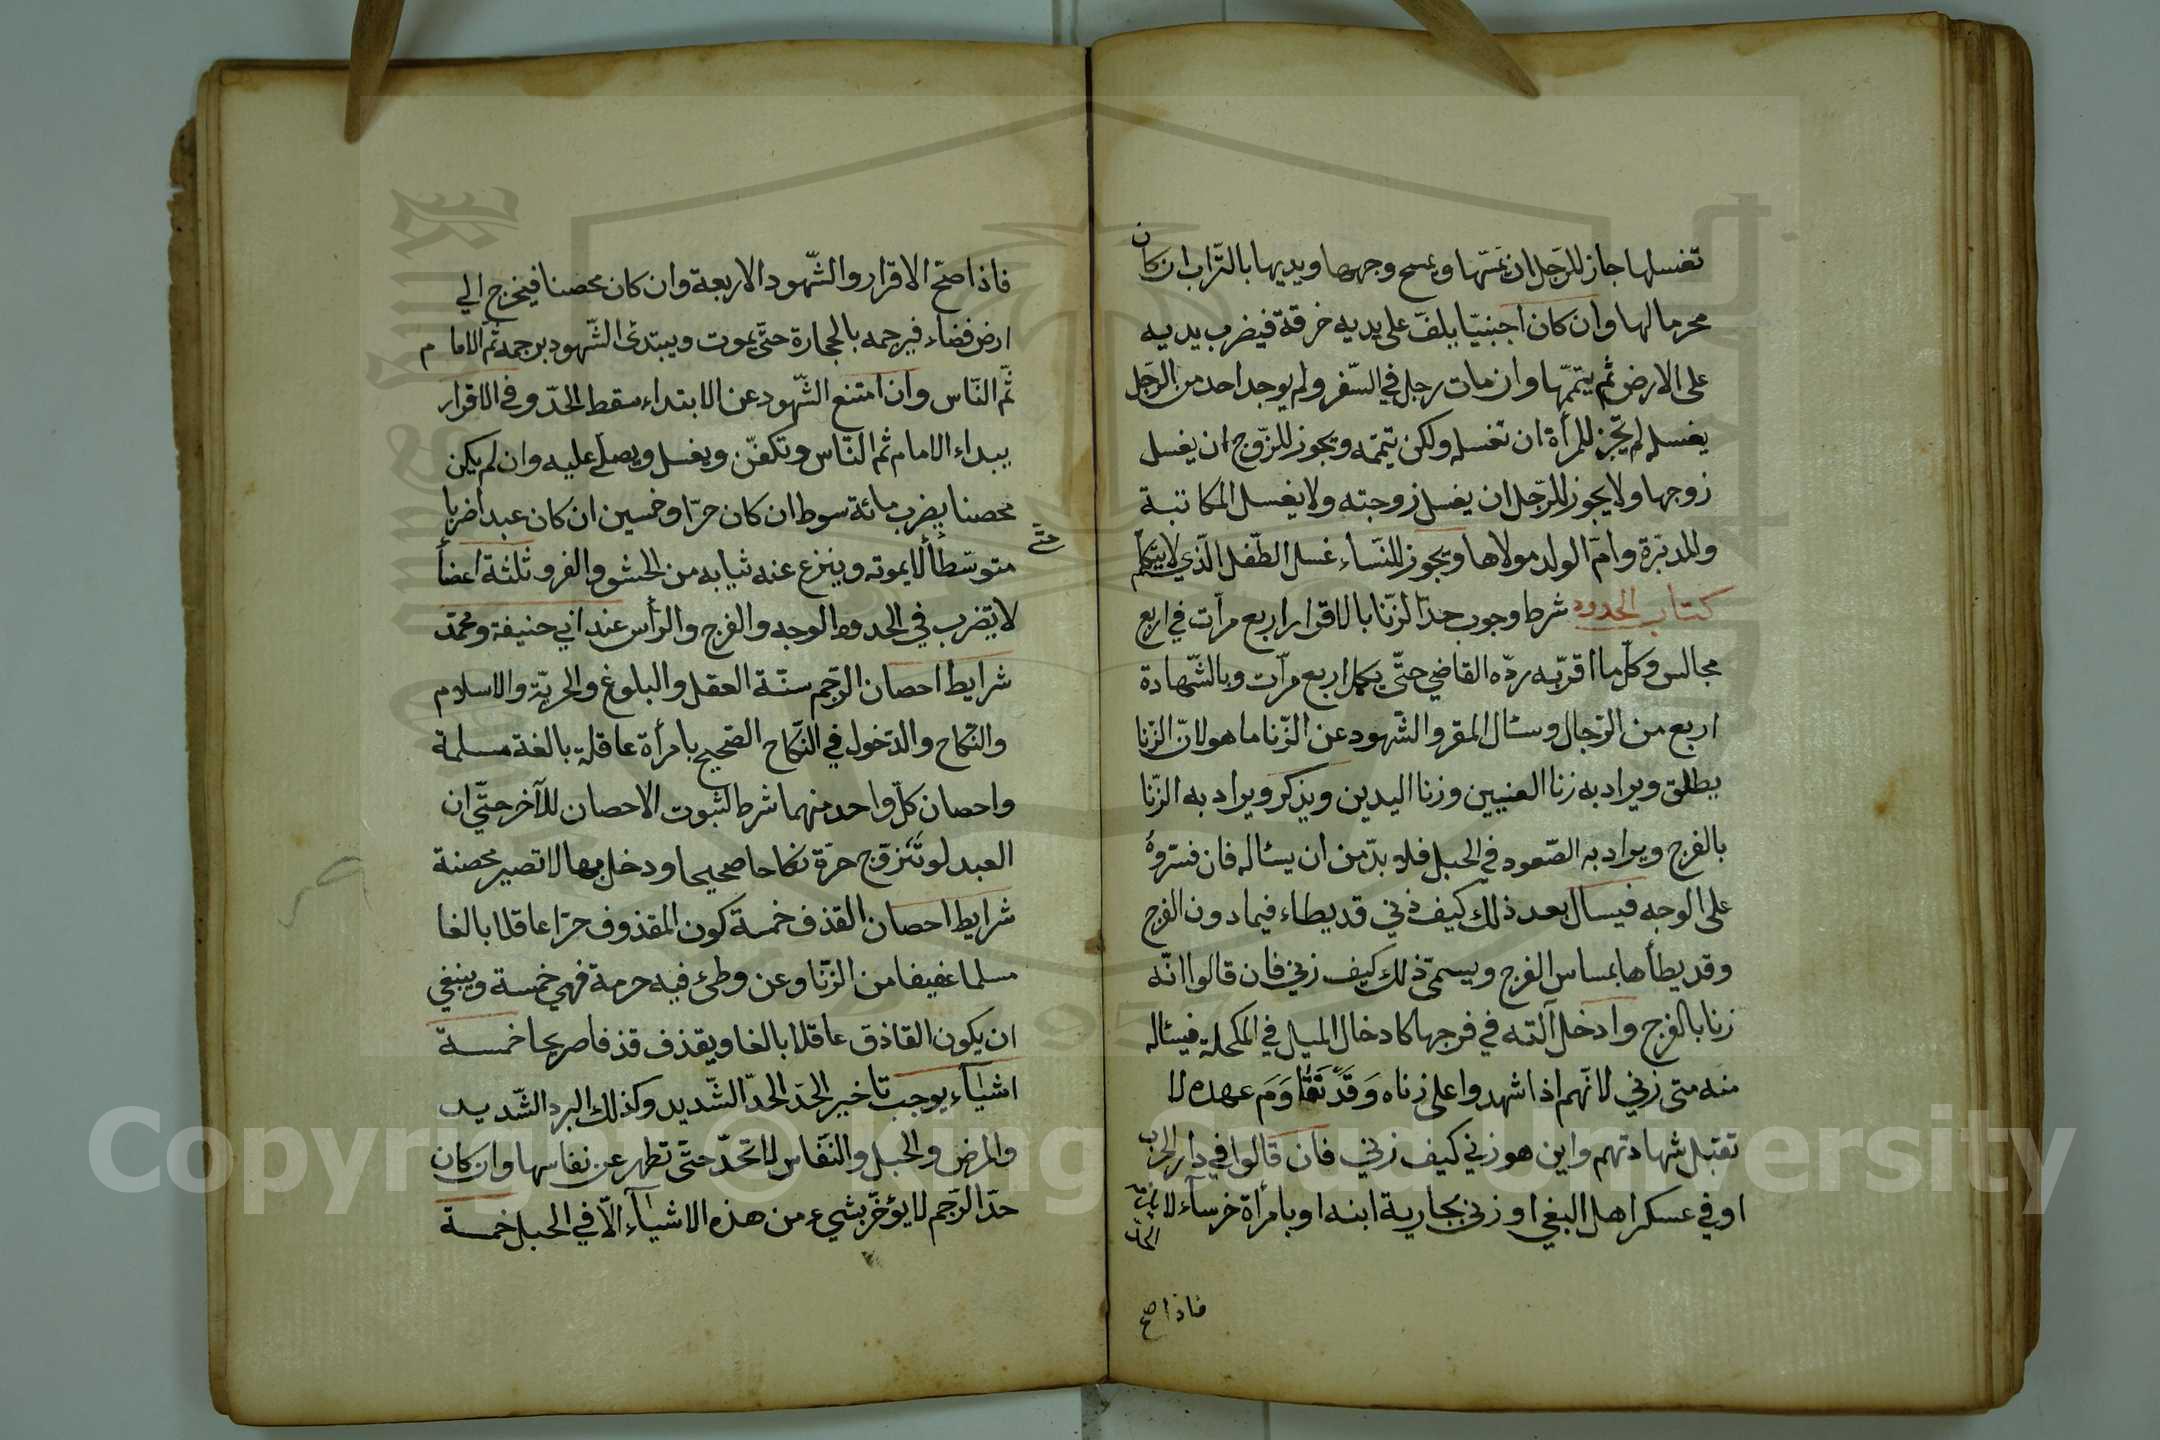 تغسلها جاز للرّجل ان يمسّها ويمسح وجهها ويديها بالتّراب ان كان
محرما لها وان كان اجنبيّا يلفّ على يديه خرقة فيضرب يديه
على الارض ثم يتيمّمها وان مات رجل في السّفر ولم يوجد احد من الرّجل
يغسله لم تجز للمرأة ان تغسله ولكن تيمّمه وتجوز للزّوج ان يغسل
زوجها ولا يجوز للرّجل ان يغسل زوجته ولا يغسل المكاتبة
والمدبّرة وامّ الولد مولاها ويجوز للنّساء غسل الطّفل الّذي لا يتكلّم
كتاب الحدود شرط وجوب حدّ الزّنا بالاقرار اربع مرّات في اربع
مجالس وكلّ ما اقرّ به ردّه القاضي حتّى يكمل اربع مرّات وبالشّهادة
اربع من الرّجال وسئال المقر والشّهود عن الزّنا ما هو لانّ الزّنا
يطلق ويراد به زنا العنيين وزنا اليدين ويذكر ويراد به الزّنا
بالفرج ويراد به الصّعود في الجبل فلا بدّ من ان يسئاله فان فسّروه
على الوجه فيسال بعد ذلك كيف زني قد يطاء فيما دون الفرج
وقد يطأها بمساس الفرج ويسمّى ذلك كيف زني فان قالوا انّه
زنا بالفرج وادخل آلته في فرجها كادخال الميل في المكحلة فيسئاله
منه متى زني لانّهم اذا شهدوا على زناه وقد تقاوم عهده لا
تقبل شهادتهم واين هو زني كيف زني فان قالوا في دار الحرب
او في عسكر اهل البغي او زنى بجارية ابنه او بامرأة خرساء لا يجب
الحدّ
فاذا صح
فاذا صحّ الاقرار والشّهود الاربعة وان كان محصنا فيخرج الي
ارض فضاء فيرجمه بالحجارة حتّى يموت ويبتدئ الشّهود برجمه ثمّ الامام
ثمّ النّاس وان امتنع الشّهود عن الابتداء سقط الحدّ وفي الاقرار
يبداء الامام ثم النّاس وتكفّن ويغسل ويصلّى عليه وان لم يكن
محصنا يضرب مائة سوط ان كان حرّا وخمسين ان كان عبدا ضربا
حتّى
متوسّطاً لا يموته وينزع عنه ثيابه من الحشو والفرو ثلثة اعضأ
لا يضرب في الحدود الوجه والفرج والرأس عند ابي حنيفة ومحمّد
شرايط احصان الرّجم ستّة العقل والبلوغ والحريّة والاسلام
والنّكاح والدّخول في النّكاح الصّحيح بامرأة عاقلة بالغة مسلمة
واحصان كلّ واحد منهما شرط لثبوت الاحصان للآخر حتّي ان
العبد لو تزوّج حرّة نكاحا صحيحا ودخل بها لا تصير محصنة
شرايط احصان القذف خمسة كون المقذوف حرّا عاقلا بالغا
مسلما عفيفا من الزّنا وعن وطئ فيه حرمة فهي خمسة وينبغي
ان يكون القاذف عاقلا بالغا ويقذف قذفا صريحا خمسة
اشياء يوجب تاخير الحدّ الحدّ الشّديد وكذلك البرد الشّديد
والمرض والحبل والنّفاس لا تحدّ حتّى تطهر عن نفاسها وان كان
حدّ الرّجم لا يؤخّر بشيء من هذه الاشياء الّا في الحبل خمسة
Copyright © King Saud University